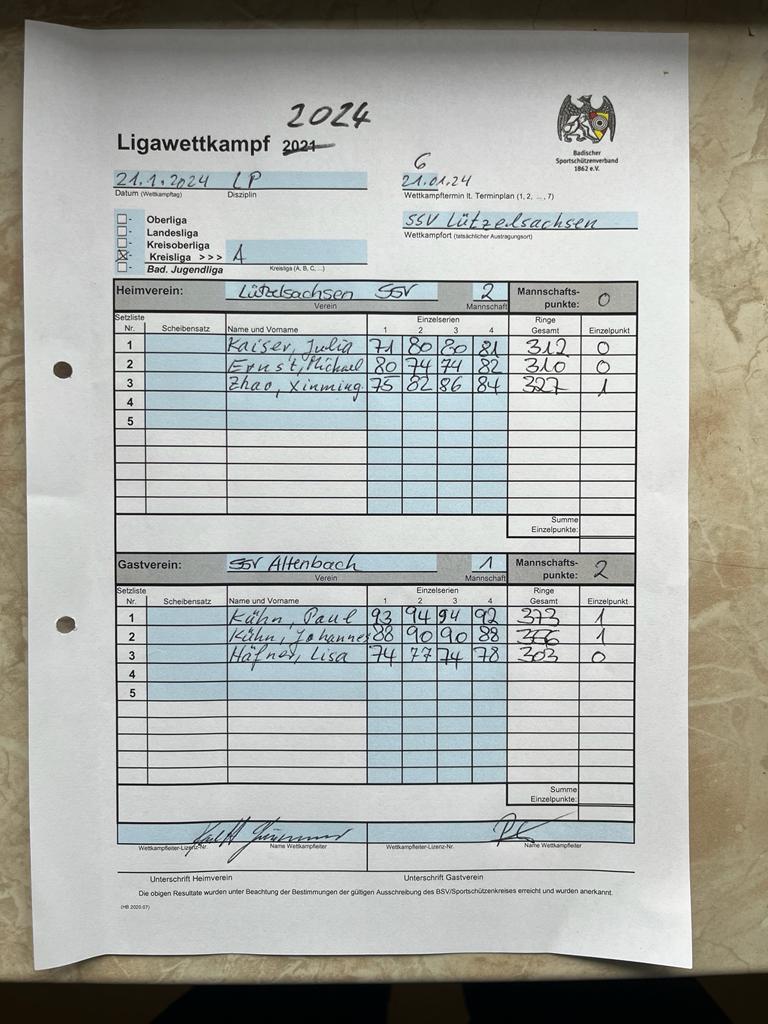 2024
Ligawettkampf 2021
Badischer
Sportschützenverband
1862 e.V.
21.1.2024 LP
Datum (Wettkampftag) Disziplin
6
21.01.24
Wettkampftermin lt. Terminplan (1, 2, ..., 7)
SSV Lützelsachsen
Wettkampfort (tatsächlicher Austragungsort)
Oberliga
Landesliga
Kreisoberliga
Kreisliga >>> A
Bad. Jugendliga Kreisliga (A, B, C, ...)
Heimverein: Lützelsachsen SSV 2 Mannschafts-
punkte: 0
Verein Mannschaft
Setzliste Einzelserien Ringe
Nr. Scheibensatz Name und Vorname 1 2 3 4 Gesamt Einzelpunkt
1 Kaiser, Julia 71 80 80 81 312 0
2 Ernst, Michael 80 74 74 82 310 0
3 Zhao, Xinming 75 82 86 84 327 1
4
5
Summe
Einzelpunkte:
Gastverein: SSV Altenbach 1 Mannschafts-
punkte: 2
Verein Mannschaft
Setzliste Einzelserien Ringe
Nr. Scheibensatz Name und Vorname 1 2 3 4 Gesamt Einzelpunkt
1 Kühn, Paul 93 94 94 92 373 1
2 Kühn, Johannes 88 90 90 88 1
3 Häfner, Lisa 74 77 74 78 303 0
4
5
Summe
Einzelpunkte:
Wettkampfleiter-Lizenz-Nr. Name Wettkampfleiter Wettkampfleiter-Lizenz-Nr. Name Wettkampfleiter
Unterschrift Heimverein Unterschrift Gastverein
Die obigen Resultate wurden unter Beachtung der Bestimmungen der gültigen Ausschreibung des BSV/Sportschützenkreises erreicht und wurden anerkannt.
(HB 2020.07)